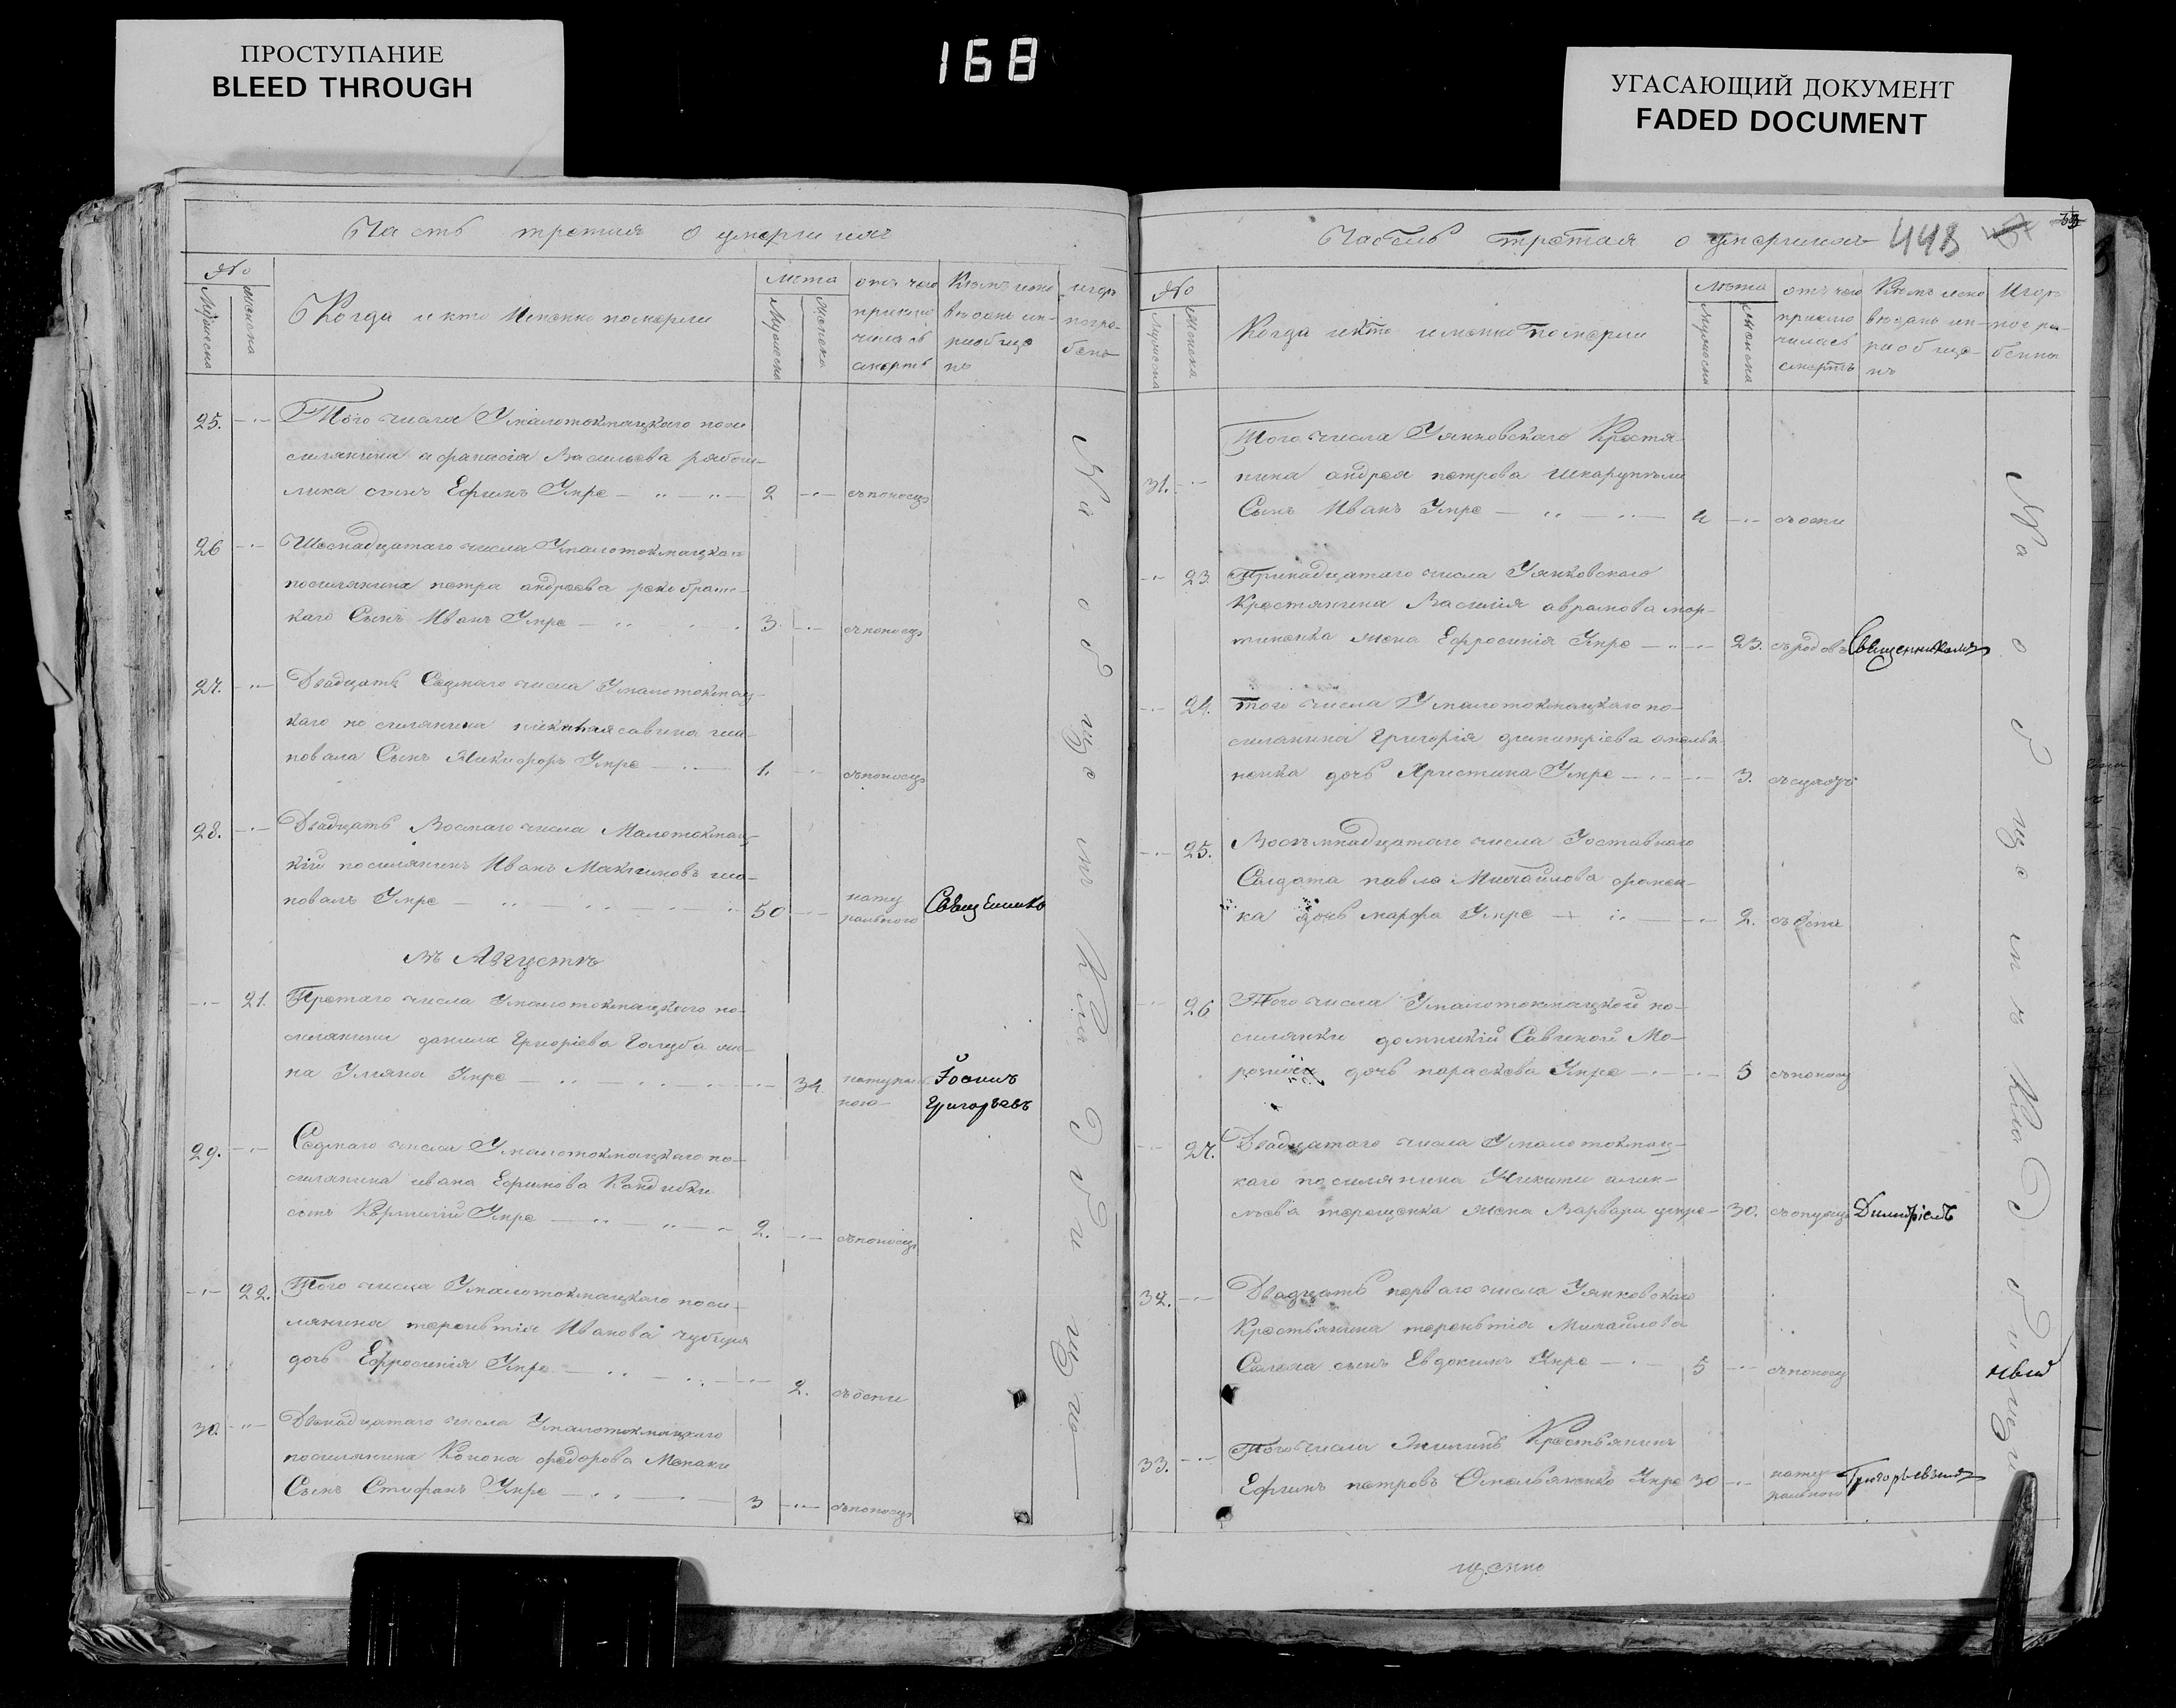 ПРОСТУПАНИЕ
BLEED THROUGH
168
УГАСАЮЩИЙ ДОКУМЕНТ
FADED DOCUMENT
Часть третия о умершихъ
№
Мужеска
женска
Когда и кто Именно померли
лѣта
Мужеска
женска
отъ чего
приклю
чилась
смерть
Кемъ испо
ведань ин-
риобще
нъ
игдѣ
погре-
бенъ
25.
Того числа Умалотокмацкаго посе
силянина афанасія Васильева
сынъ Ефимъ Умре
2
съпоносу
26
Шеснадцатаго числа Умалотокмацкаго
посилянина петра андреева
Сынъ Иванъ Умре
3.
съпоносу
27.
Двадцать Седмаго числа Умалотокмац-
каго посилянина савина ша-
повала Сынъ Никифоръ Умре
1.
съпоносу
28.
Двадцать Восмаго числа Малотокмац-
кій посилянинъ Иванъ Максимовъ ша-
повалъ Умре
50
нату
рального
Священникъ
въ Августѣ
21.
Третаго числа Умалотокмацкаго по-
силянина данила Григоріева Голуба же-
на Умре
34
Іоаннъ
Григорьевъ
29.
Седмаго числа Умалотокмацкаго по-
силянина ивана Ефимова Кандибки
сынъ Умре
2.
съпоносу
22.
Того числа Умалотокмацкаго поси-
лянина терентія Иванова
дочь Ефросинія Умре
2.
съоспи
30.
Двенадцатаго числа Умалотокмацкаго
посилянина Конона федорова
Сынъ Стифанъ Умре
3
съпоносу
На общемъ Кладбищю
Часть третая о умершихъ
448
№
Мужеска
женска
Когда икто именно померли
лѣта
мужеска
женска
отъ чего
приклю
чилась
смерть
Кемъ испо
ведань ин-
риобще-
нъ
Игдѣ
погре-
бенны
31.
Того числа Уянковскаго Крестя-
нина андрея петрова
Сынъ Иванъ Умре
4
съоспи
23.
Тринадцатаго числа Уянковскаго
Крестянина Василія аврамова мар-
тиненка жена Ефросинія Умре
23.
съродовъ
Священникомъ
24.
того числа Умалотокмацкаго по-
силянина Григорія димитріева омелья
ненка дочь Христина Умре
3.
25.
Восьмнадцатаго числа Уоставнаго
Салдата павла Михайлова фомен-
ка дочь марфа Умре
2.
съоспи
26
Того числа Умалотокмацкой по-
силянки домникіи Савиной Мо-
дочь параскева Умре
5
съпоносу
27.
Двадцатаго числа Умалотокмац-
каго посилянина Никити алек-
сѣева терещенка жена Варвара умре
30.
съопухо
Димитріемъ
32.
Двадцать перваго числа Уянковскаго
Крестьянина терентія Михайлова
сынъ Евдокимъ Умре
5
съпоносу
33.
Того числа Крестьянинъ
Ефимъ петровъ Омельяненко Умре
30
нату
рального
Григорьевымъ
На общемъ Кладбищи
щенно